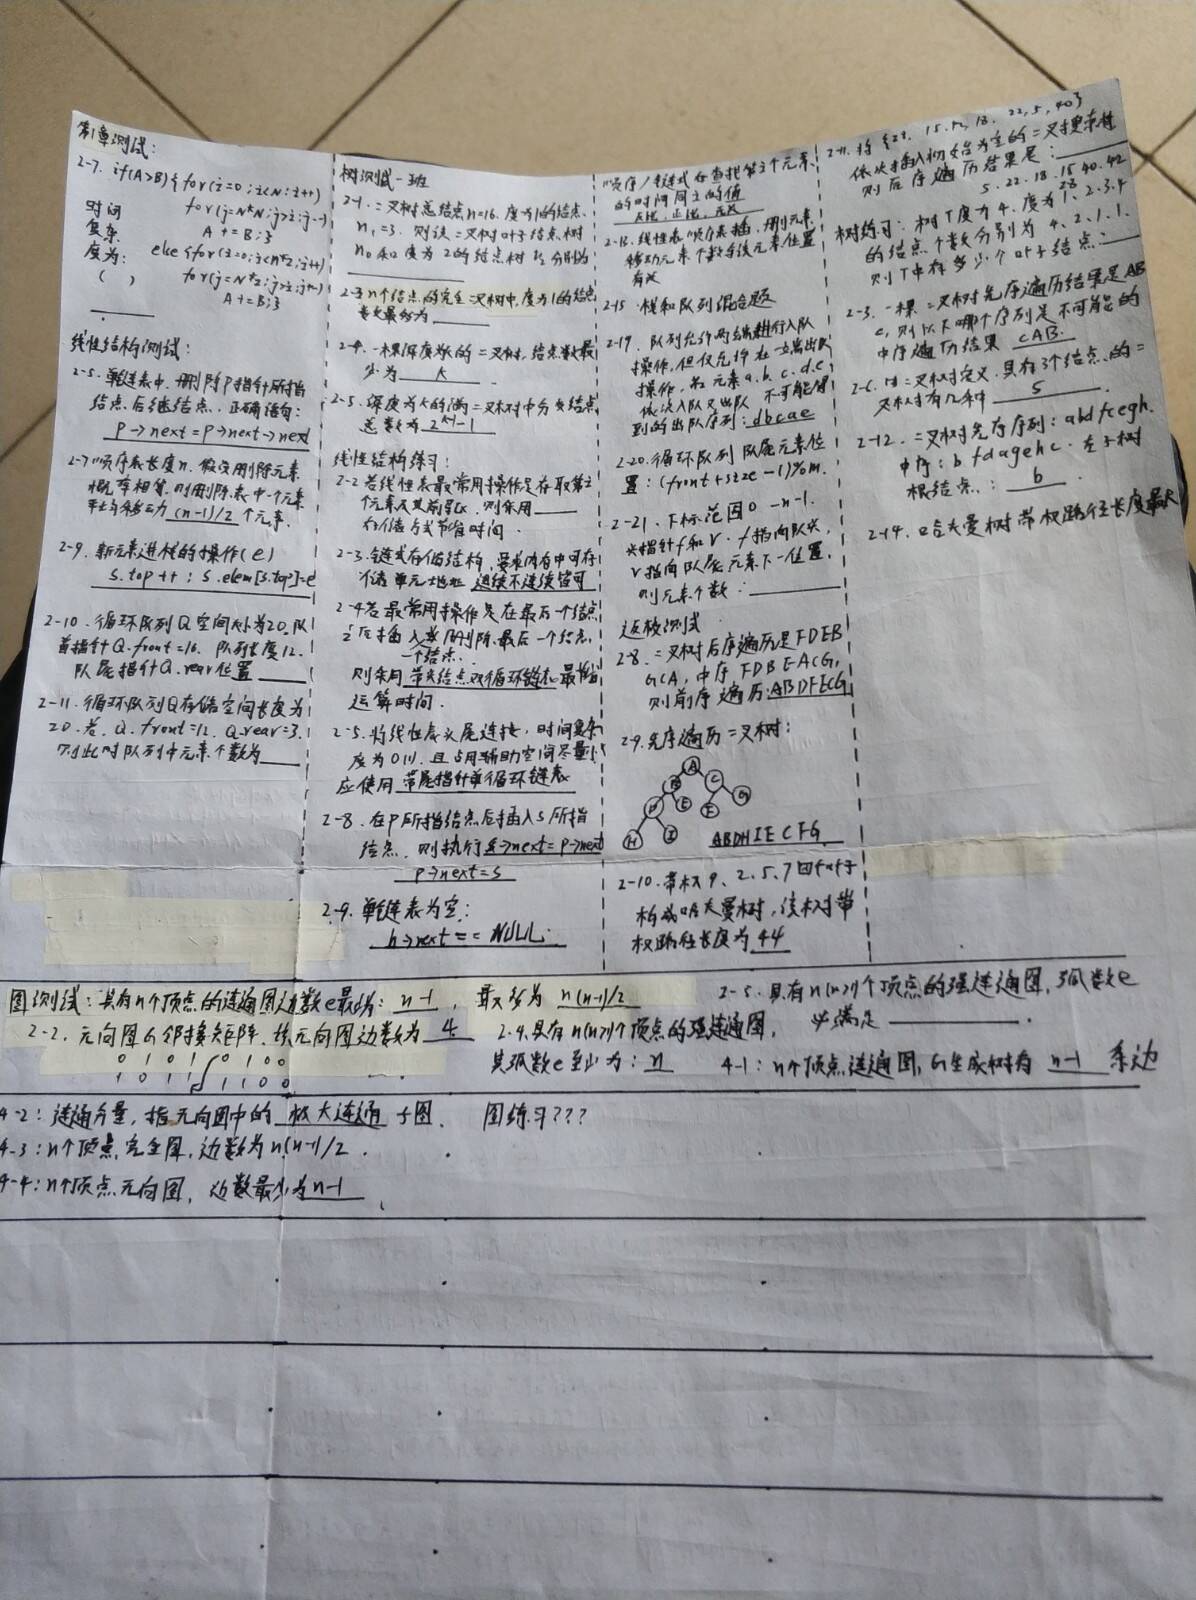 第1章测试:
2-7. if(A>B){for(i=0;i<N;i++)
for(j=N*N;j>i;j--)
A+=B;}
else{for(i=0;i<N*2;i++)
for(j=N*2;j>i;j--)
A+=B;}
时间
复杂
度为:
( )
线性结构测试:
2-5. 单链表中,删除P指针所指
结点后继结点,正确语句:
p->next=p->next->next
2-7 顺序表长度n,假设删除元素
概率相等,则删除表中一个元素
平均移动 (n-1)/2 个元素.
2-9. 新元素进栈的操作(e)
S.top++; S.elem[S.top]=e
2-10. 循环队列Q空间大小为20,队
首指针Q.front=16. 队列长度12.
队尾指针Q.rear位置
2-11. 循环队列Q存储空间长度为
20.若,Q.front=12. Q.rear=3.
则此时队列中元素个数为
树测试-班
2-1. 二叉树总结点n=16.度为1的结点.
n₁=3. 则该二叉树叶子结点树
n₀和度为2的结点树n₂分别为
2-3 n个结点的完全二叉树中,度为1的结点
数最多为
2-4. 一棵深度为k的二叉树,结点数最
少为 k .
2-5. 深度为k的满二叉树中分支结点
总数为 2^(k-1)-1
线性结构练习:
2-2 若线性表最常用操作是存取第i
个元素及其前驱,则采用
存储方式节省时间.
2-3.链式存储结构,要求内存中可存
储单元地址 连续不连续皆可
2-4若最常用操作是在最后一个结点
之后插入或删除最后一个结点,
一个结点.
则采用 带头结点双循环链表 最节省
运算时间.
2-5. 将线性表头尾连接,时间复杂
度为O(1),且占用辅助空间尽量小
应使用 带尾指针单循环链表
2-8. 在P所指结点后插入S所指
结点,则执行 s->next=p->next
p->next=s
2-9. 单链表为空:
h->next==NULL.
顺序/链式存查找第i个元素.
的时间同i的值
反比,正比,无关
2-16. 线性表顺序表插、删元素
移动元素个数与该元素位置
有关
2-15. 栈和队列混合题
2-19. 队列允许两端进行入队
操作,但仅允许在一端出队
操作,若元素a.b.c.d.e
依次入队又出队 不可能得
到的出队序列: dbcae
2-20.循环队列 队尾元素位
置: (front+size-1)%m.
2-21. 下标范围0-n-1.
头指针f和r. f指向队头,
r指向队尾元素下一位置.
则元素个数:
2-8. 二叉树后序遍历是FDEB
GCA, 中序 FDBEACG,
则前序遍历:ABDFECG
2-9.先序遍历二叉树:
A
B C
D E F G
H I
ABDHIECFG.
2-10.带权9、2、5、7四个叶子
构成哈夫曼树,该树带
权路径长度为 44
2-11. 将 {28. 15.42, 18. 22,5,40}
依次插入初始为空的二叉搜索树
则后序遍历结果是:
5.22.18.15.40.42
28
树练习: 树T度为4. 度为1、2.3.4
的结点个数分别为 4. 2. 1. 1.
则T中有多少个叶子结点:
2-3. 一棵二叉树先序遍历结果是AB
C, 则以下哪个序列是不可能的
中序遍历结果 CAB.
2-6. 由二叉树定义,具有3个结点的二
叉树有几种 5
2-12. 二叉树先序序列: abdfcegh.
中序: bfdagehc. 左子树
根结点: b .
2-14. 哈夫曼树带权路径长度最
图测试: 具有n个顶点的连通图边数e最少为: n-1 , 最多为 n(n-1)/2
2-5. 具有n(n>1)个顶点的强连通图,弧数e
必满足 .
2-2. 无向图G邻接矩阵. 该无向图边数为 4
0 1 0 1 0 1 0 0
1 0 1 1 1 1 0 0
2-4.具有n(n>1)个顶点的强连通图,
其弧数e至少为: n
4-1: n个顶点连通图,G生成树有 n-1 条边
4-2: 连通分量,指无向图中的 极大连通 子图. 图练习???
4-3: n个顶点,完全图,边数为n(n-1)/2 .
4-4: n个顶点无向图, 边数最少为n-1